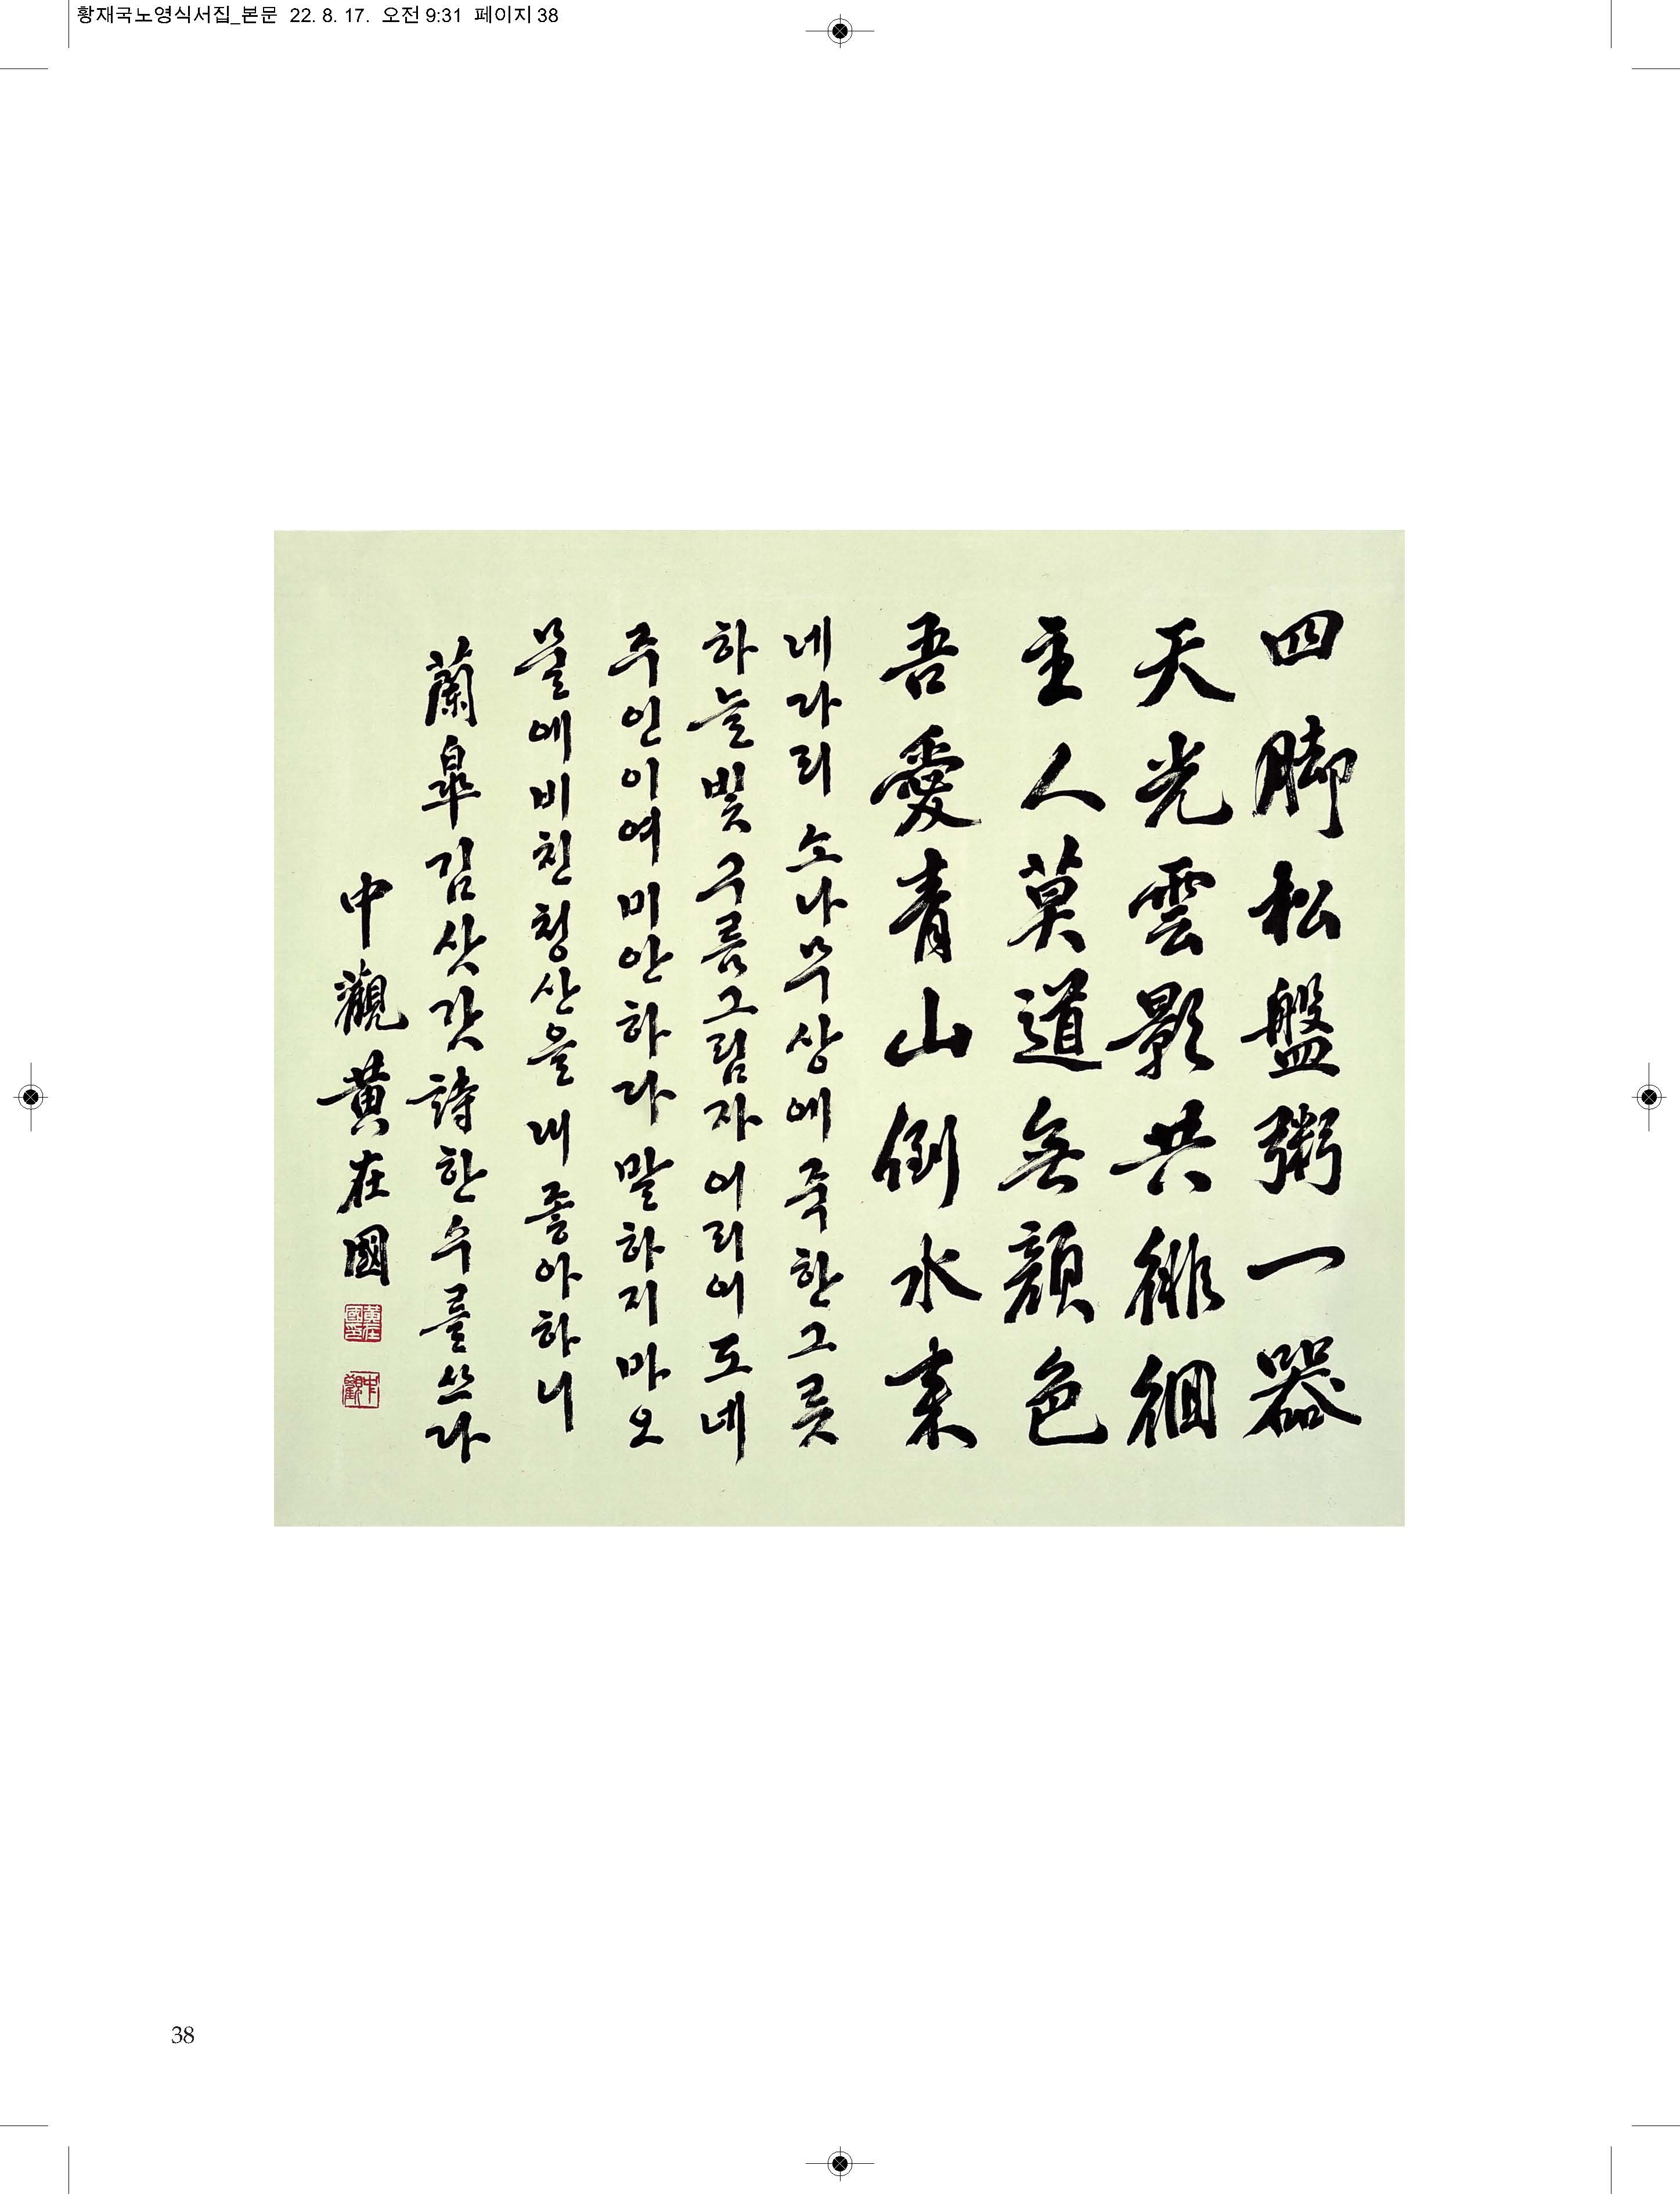 황재국노영식서집_본문 22. 8. 17. 오전 9:31 페이지 38
四脚松盤粥一器
天光雲影共徘徊
主人莫道無顔色
吾愛青山倒水来
네다리 소나무상에 죽한그릇
하늘빛 구름그림자 어리어 도네
주인이여 미안하다 말하지 마오
물에 비친 청산을 내 좋아하니
蘭皐 김삿갓 詩 한 수를 쓰다
中觀 黄在國
黄在國印
中觀
38